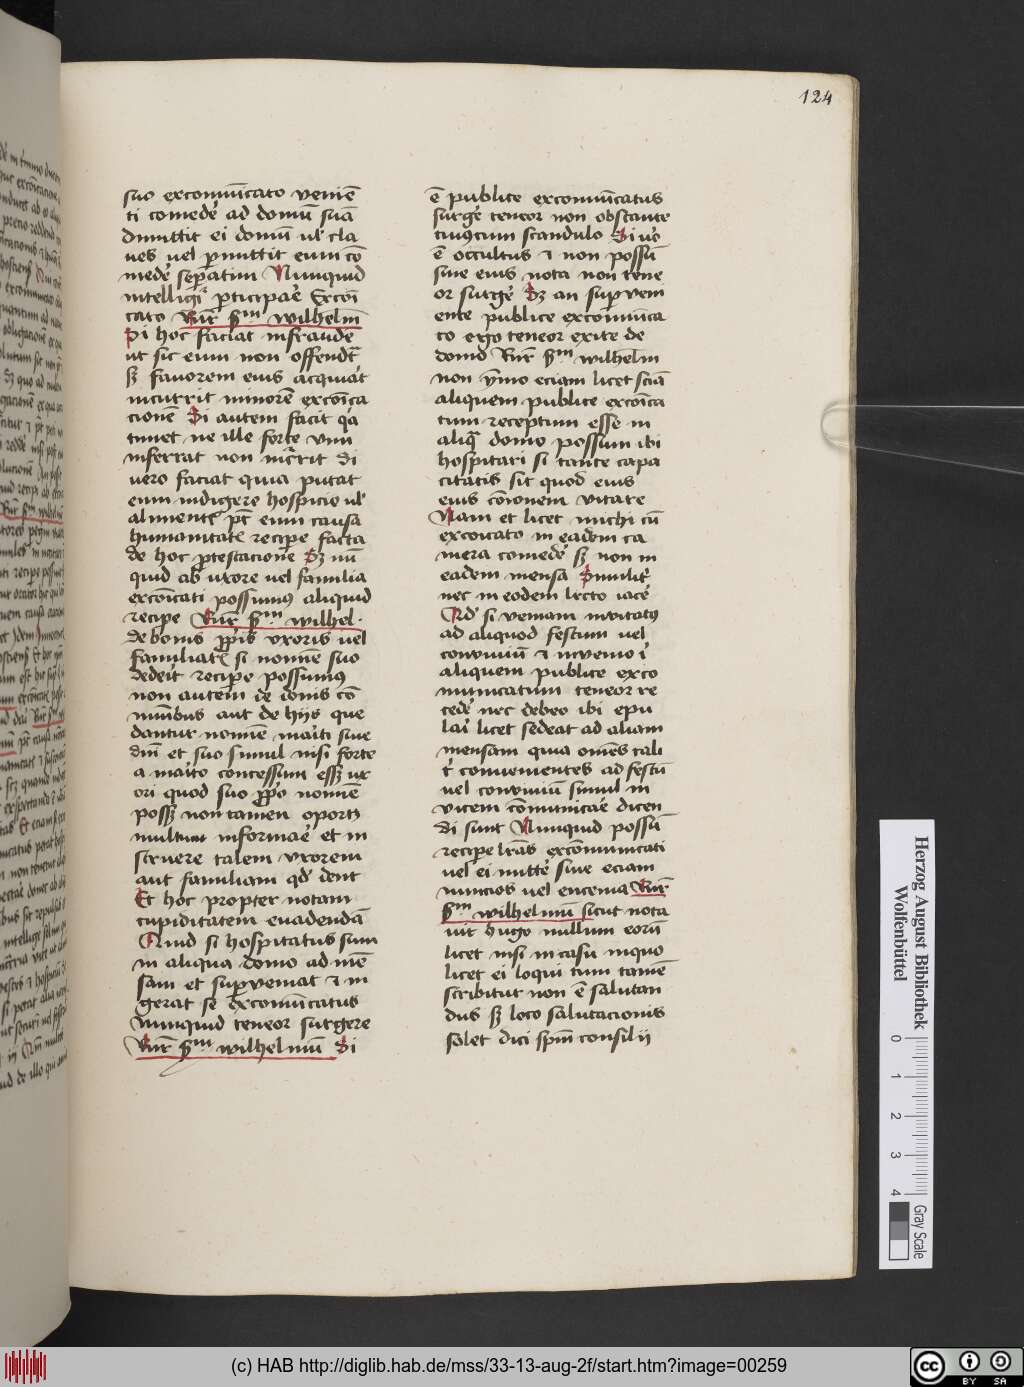 124
suo excomūicato veniē
ti comedē ad domū suā
dimittit ei domū ul' cla
ues uel pmittit eum cō
medē sepatim Nunquid
intelligit pticipaē Excōi
cato Rūr ẜm wilhelm̄
Si hoc faciat infraudē
ut sic eum non offendat
sꝫ fauorem eius acquiat
incurrit minorē excōica
cionē Si autem facit qa
timet ne ille forte vim
inferrat non incrrit Si
uero faciat quia putat
eum indigere hospicio ul'
alimentis pt̄ eum causa
humanitatis recipe facta
de hoc ptestacione Sꝫ nū
quid ab uxore uel familia
excōicati possumus aliquid
recipe Rūr ẜm wilhel.
de bonis pprijs uxoris uel
familiaris si nomīe suo
dederit recipe possumus
non autem de bonis cō
munibus aut de hijs que
dantur nomīe mariti siue
dnī et suo simul nisi forte
a marito concessum essꝫ ux
ori quod suo pprio nomīe
possꝫ non tamen oportꝫ
multum informaē et in
struere talem uxorem
aut familiam qd' dent
Et hoc propter notam
cupiditatem euadendā
Quid si hospitatus sum
in aliqua domo ad mē
sam et supueniat et in
gerat se excomūicatus
Nunquid teneor surgere
Rūr ẜm. wilhelmū Si
ē publice excomūicatus
surgē teneor non obstante
cuiuscum scandulo Si uo
ē occultus et non possū
sine eius nota non tene
or surgē Sꝫ an supueni
ente publice excomunica
to ergo teneor exire de
domo Rūr ẜm wilhelm
non ymo eciam licet sciā
aliquem publice excōica
tum receptum esse in
aliqa domo possum ibi
hospitari si tante capa
citatis sit quod eius
eius cōionem vitare
Nam et licet michi cū
excōicato in eadem ca
mera comedē sꝫ non in
eadem mensa Similit'
nec in eodem lecto iacē
Qd' si ueniam inuitatus
ad aliquod festum uel
conuiuiū et inuenio i'
aliquem publice exco
municatum teneor re
cedē nec debeo ibi epu
lari licet sedeat ad aliam
mensam quia omēs tali
t' conuenientes ad festū
uel conuiuiū simul in
uicem cōmunicaē dicen
di sunt Nunquid possū
recipe lrās excomunicati
uel ei mittē siue eciam
nuncios uel encenia Rūr
ẜm wilhelmū sicut nota
uit hugo nullum eorū
licet nisi in casu inquo
licet ei loqui tum tamē
scribitur non ē salutan
dus sꝫ loco salutacionis
solet dici spm̄ consilii
Herzog August Bibliothek
Wolfenbüttel
0 1 2 3 4
Gray Scale
(c) HAB http://diglib.hab.de/mss/33-13-aug-2f/start.htm?image=00259
cc BY SA